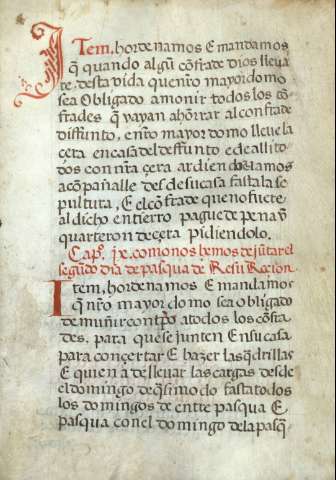 Item, hordenamos E mandamos
q̃ quando algũ cõfrade dios lleva
re, desta vida quenr̃o mayordomo
sea Obligado a monir todos los cõ
frades q̃ vayan ahõrrar al confrade
diffunto, e nr̃o mayordomo lleve la
çera encasa del deffunto E de alli to
dos con nr̃a çera ardiendo vamos
acõpañalle desde su casa fasta la se
pultura, E el cõfrade que no fuere
al dicho entierro pague de pena vn
quarteron de çera pidiendolo.
Capº. ix. como nos hemos de jũtar el
segundo dia de pasqua de Resurreçion
Item, hordenamos E mandamos
q̃ nr̃o mayordomo sea obligado
de muñir contpõ a todos los cõfra
des. para que se junten En su casa
para conçertar E hazer las q̃drillas
E quien a de llevar las cargas desde
el domingo de q̃simodo fasta todos
los domingos de entre pasqua E
pasqua con el domingo de la pasq̃